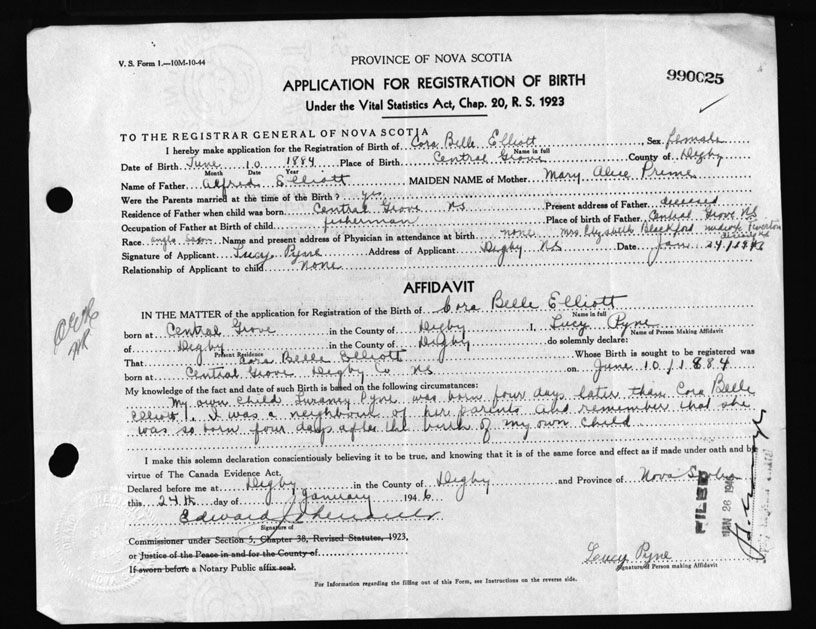 V. S. Form 1.—10M-10-44
PROVINCE OF NOVA SCOTIA
990025
APPLICATION FOR REGISTRATION OF BIRTH
Under the Vital Statistics Act, Chap. 20, R. S. 1923
TO THE REGISTRAR GENERAL OF NOVA SCOTIA
I hereby make application for the Registration of Birth of Cora Belle Elliott Sex female
Name in full
Date of Birth June 10 1884 Place of Birth Central Grove County of Digby
Month Date Year
Name of Father Alfred Elliott MAIDEN NAME of Mother Mary Alice Prime
Were the Parents married at the time of the Birth? yes
Residence of Father when child was born Central Grove NS Present address of Father deceased
Occupation of Father at Birth of child fisherman Place of birth of Father Central Grove NS
Race anglo saxon Name and present address of Physician in attendance at birth none Mrs. Elizabeth Blackford midwife Tiverton
Signature of Applicant Lucy Pyne Address of Applicant Digby NS Date Jan. 24, 1946
Relationship of Applicant to child None
AFFIDAVIT
IN THE MATTER of the application for Registration of the Birth of Cora Belle Elliott
Name in full
born at Central Grove in the County of Digby I, Lucy Pyne
Name of Person Making Affidavit
of Digby in the County of Digby do solemnly declare:
Present Residence
That Cora Belle Elliott Whose Birth is sought to be registered was
born at Central Grove Digby Co NS on June 10/1884
My knowledge of the fact and date of such Birth is based on the following circumstances:
My own child Pyne was born four days later than Cora Belle
Elliott. I was a neighbour of her parents and remember that she
was so born four days after the birth of my own child
I make this solemn declaration conscientiously believing it to be true, and knowing that it is of the same force and effect as if made under oath and by
virtue of The Canada Evidence Act.
Declared before me at Digby in the County of Digby and Province of Nova Scotia
this 24th day of January 1946
Edward
Signature of
Commissioner under Section 5, Chapter 38, Revised Statutes, 1923,
or Justice of the Peace in and for the County of
If sworn before a Notary Public affix seal.
FILED
JAN 26 1946
Lucy Pyne
Signature of Person making Affidavit
For Information regarding the filling out of this Form, see Instructions on the reverse side.